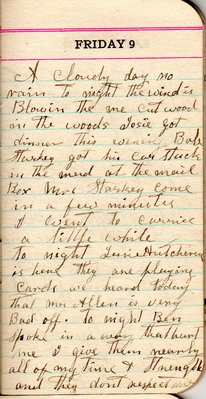 FRIDAY 9
A Cloudy day no
rain to night the wind is
Blowin the me Cut wood
in the woods Josie got
dinner this evening Bob
Starkey got his car stuck
in the mud at the mail
Box Mrs Starkey come
in a few minutes
I went to
a little while
to night June Hutcherson
is here they are playing
Cards we heard today
that Mr Allen is very
Bad off. to night Ben
Spoke in a way that hurt
me I give them nearly
all of my time & Strength
and they dont respect me